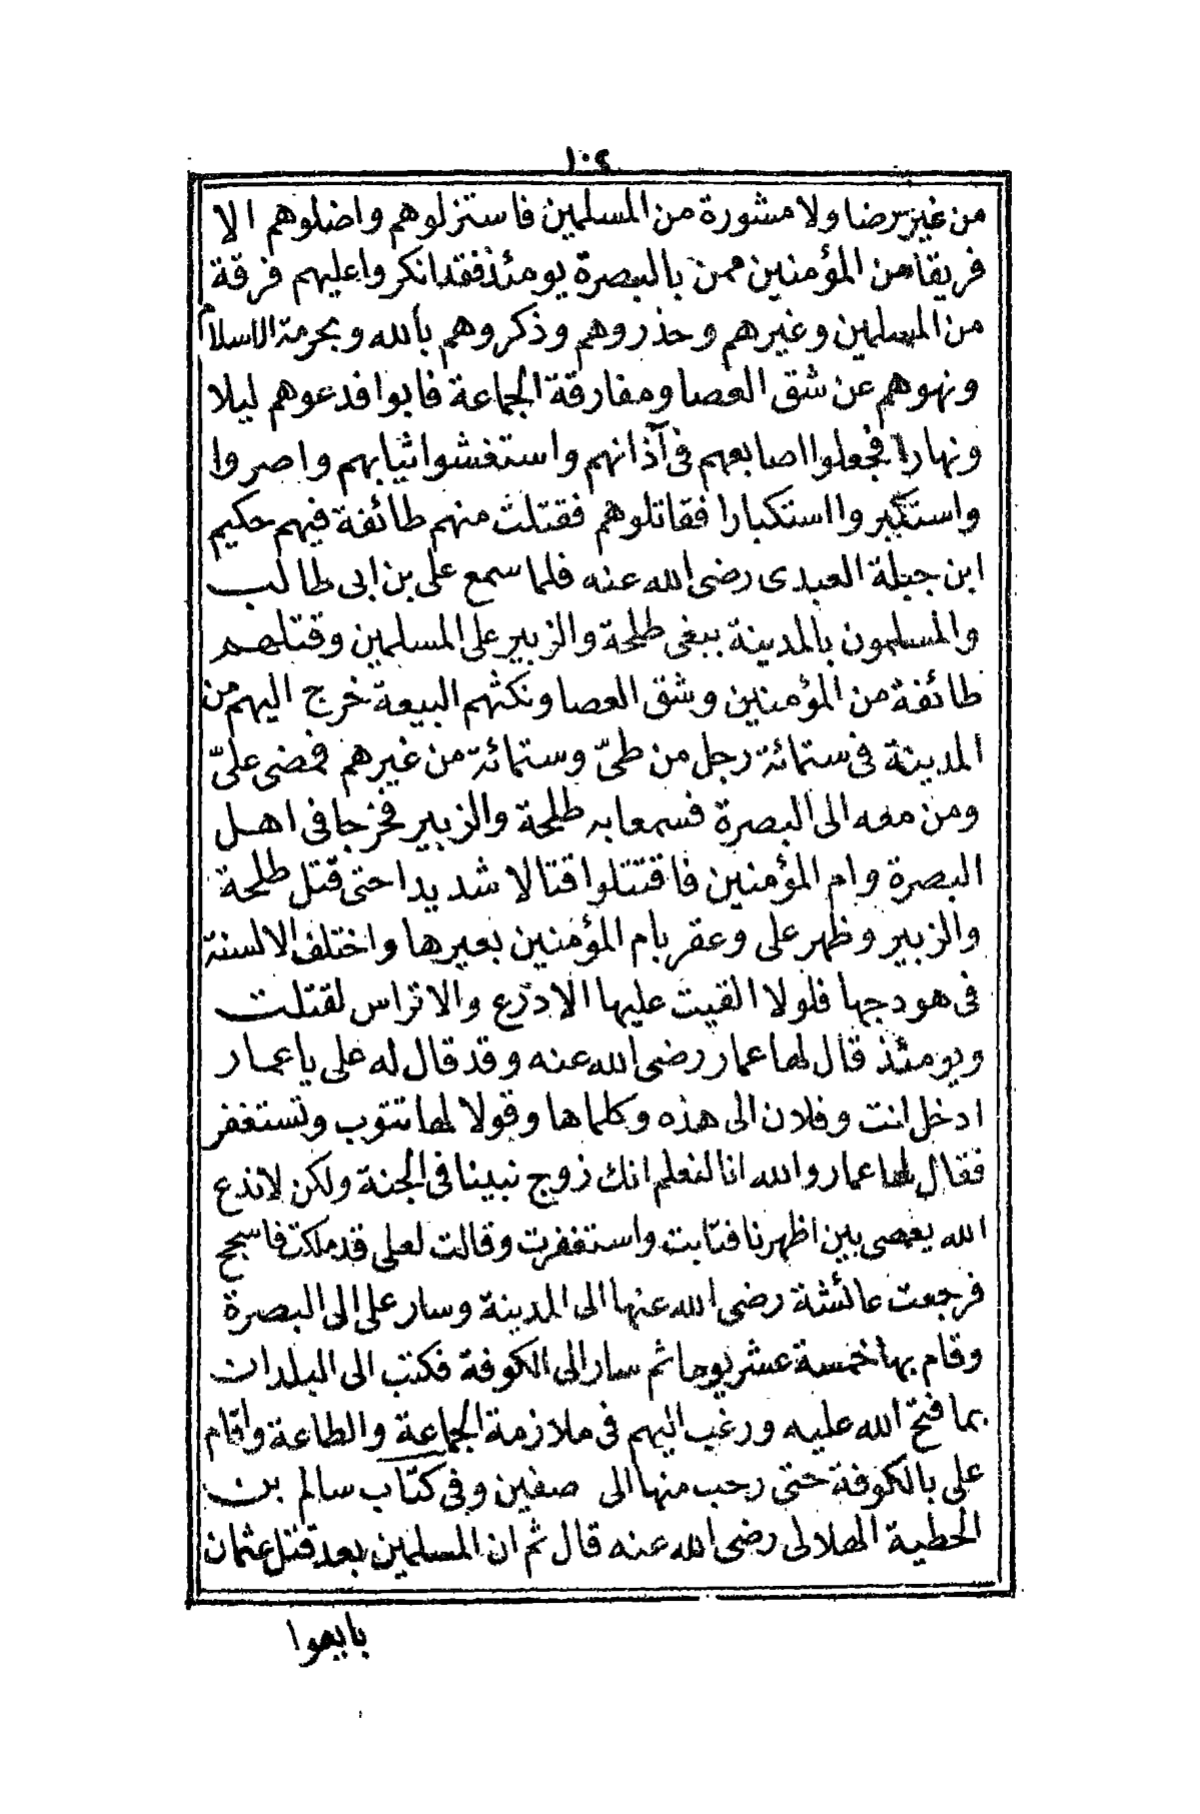 ١٠٤
من غير رضا ولا مشورة من المسلمين فاستنزلوهم واضلوهم الا
فريقا من المؤمنين ممن بالبصرة يومئذ فقد انكروا عليهم فرقة
من المسلمين وغيرهم وحذروهم وذكروهم بالله وبحرمة الاسلام
ونهوهم عن شق العصا ومفارقة الجماعة فابوا فدعوهم ليلا
ونهارا فجعلوا اصابعهم فى آذانهم واستغشوا ثيابهم واصروا
واستكبروا استكبارا فقاتلوهم فقتلت منهم طائفة فيهم حكيم
ابن جبلة العبدى رضى الله عنه فلما سمع على بن ابى طالب
والمسلمون بالمدينة ببغى طلحة والزبير على المسلمين وقتلهم
طائفة من المؤمنين وشق العصا ونكثهم البيعة خرج اليهم من
المدينة فى ستمائة رجل من طىّ وستمائة من غيرهم فمضى علىّ
ومن معه الى البصرة فسمعا به طلحة والزبير فخرجا فى اهل
البصرة وام المؤمنين فاقتتلوا قتالا شديدا حتى قتل طلحة
والزبير وظهر على وعقر بام المؤمنين بعيرها واختلف الالسنة
فى هودجها فلولا القيت عليها الادرع والاتراس لقتلت
ويومئذ قال لها عمار رضى الله عنه وقد قال له على يا عمار
ادخل انت وفلان الى هذه وكلماها وقولا لها تتوب وتستغفر
فقال لها عمار والله انا لنعلم انك زوج نبينا فى الجنة ولكن لا ندع
الله يعصى بين اظهرنا فتابت واستغفرت وقالت لعلى قد ملكت فاسجح
فرجعت عائشة رضى الله عنها الى المدينة وسار على الى البصرة
وقام بها خمسة عشر يوما ثم سار الى الكوفة فكتب الى البلدان
بما فتح الله عليه ورغب اليهم فى ملازمة الجماعة والطاعة واقام
على بالكوفة حتى رحب منها الى صفين وفى كتاب سالم بن
الحطية الهلالى رضى الله عنه قال ثم ان المسلمين بعد قتل عثمان
بايعوا